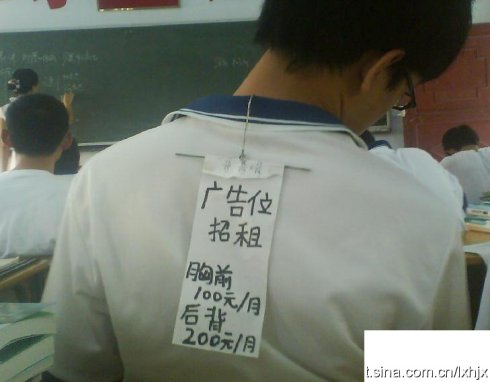 广告位
招租
胸前
100元/月
后背
200元/月
t.sina.com.cn/lxhjx